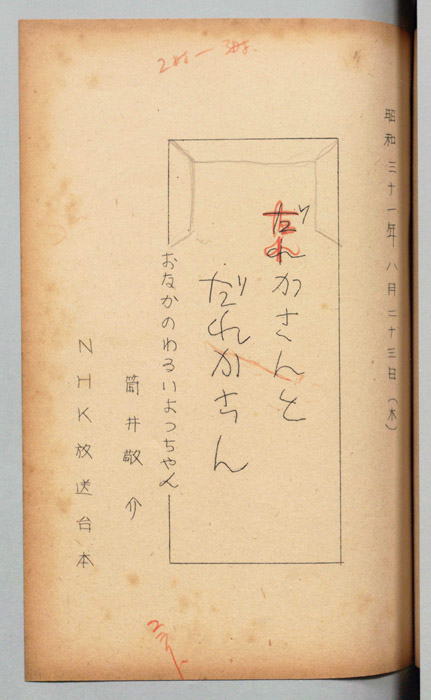 昭和三十一年八月二十三日（木）
だれかさんと
だれかさん
おなかのわるいよっちゃん
筒井敬介
NHK放送台本